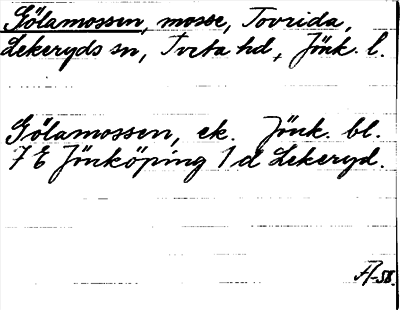 Gölamossen, mosse, Tovrida,
Lekeryds sn, Tveta hd, Jönk. l.
Gölamossen, ek. Jönk. bl.
7 E Jönköping 1 d Lekeryd.